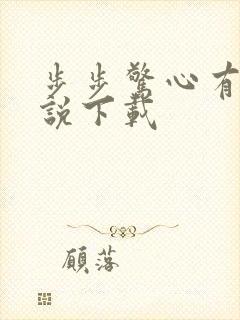 步步驚心有
說下載
顧落